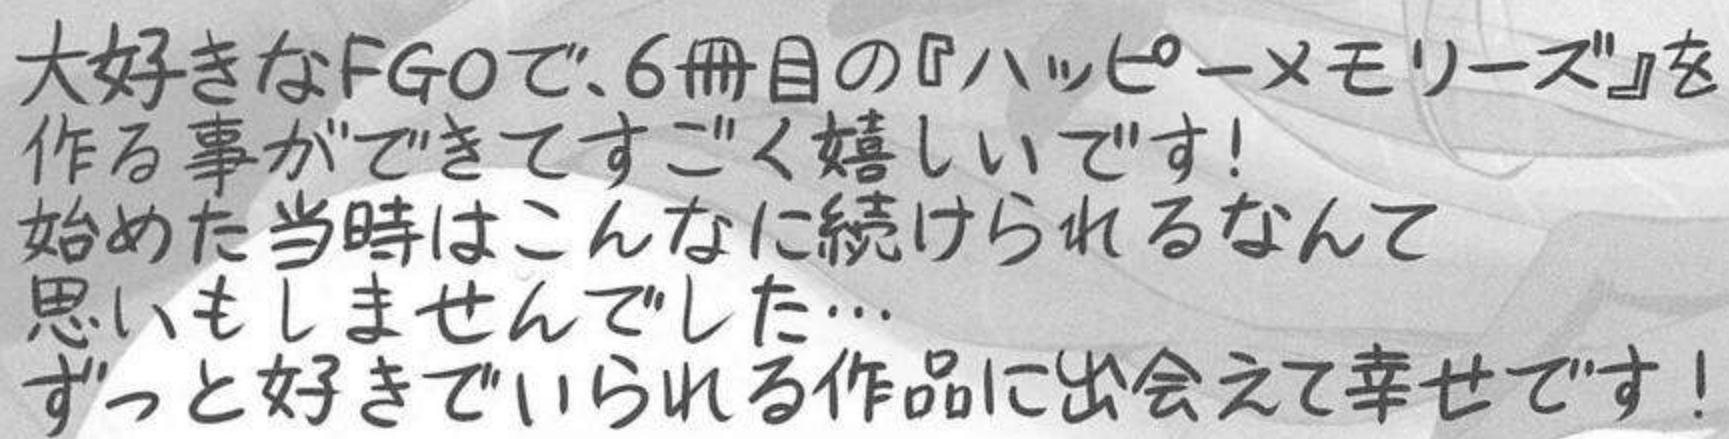 大好きなFGOで、6冊目の『ハッピーメモリーズ』を
作る事ができてすごく嬉しいです!
始めた当時はこんなに続けられるなんて
思いもしませんでした…
ずっと好きでいられる作品に出会えて幸せです!